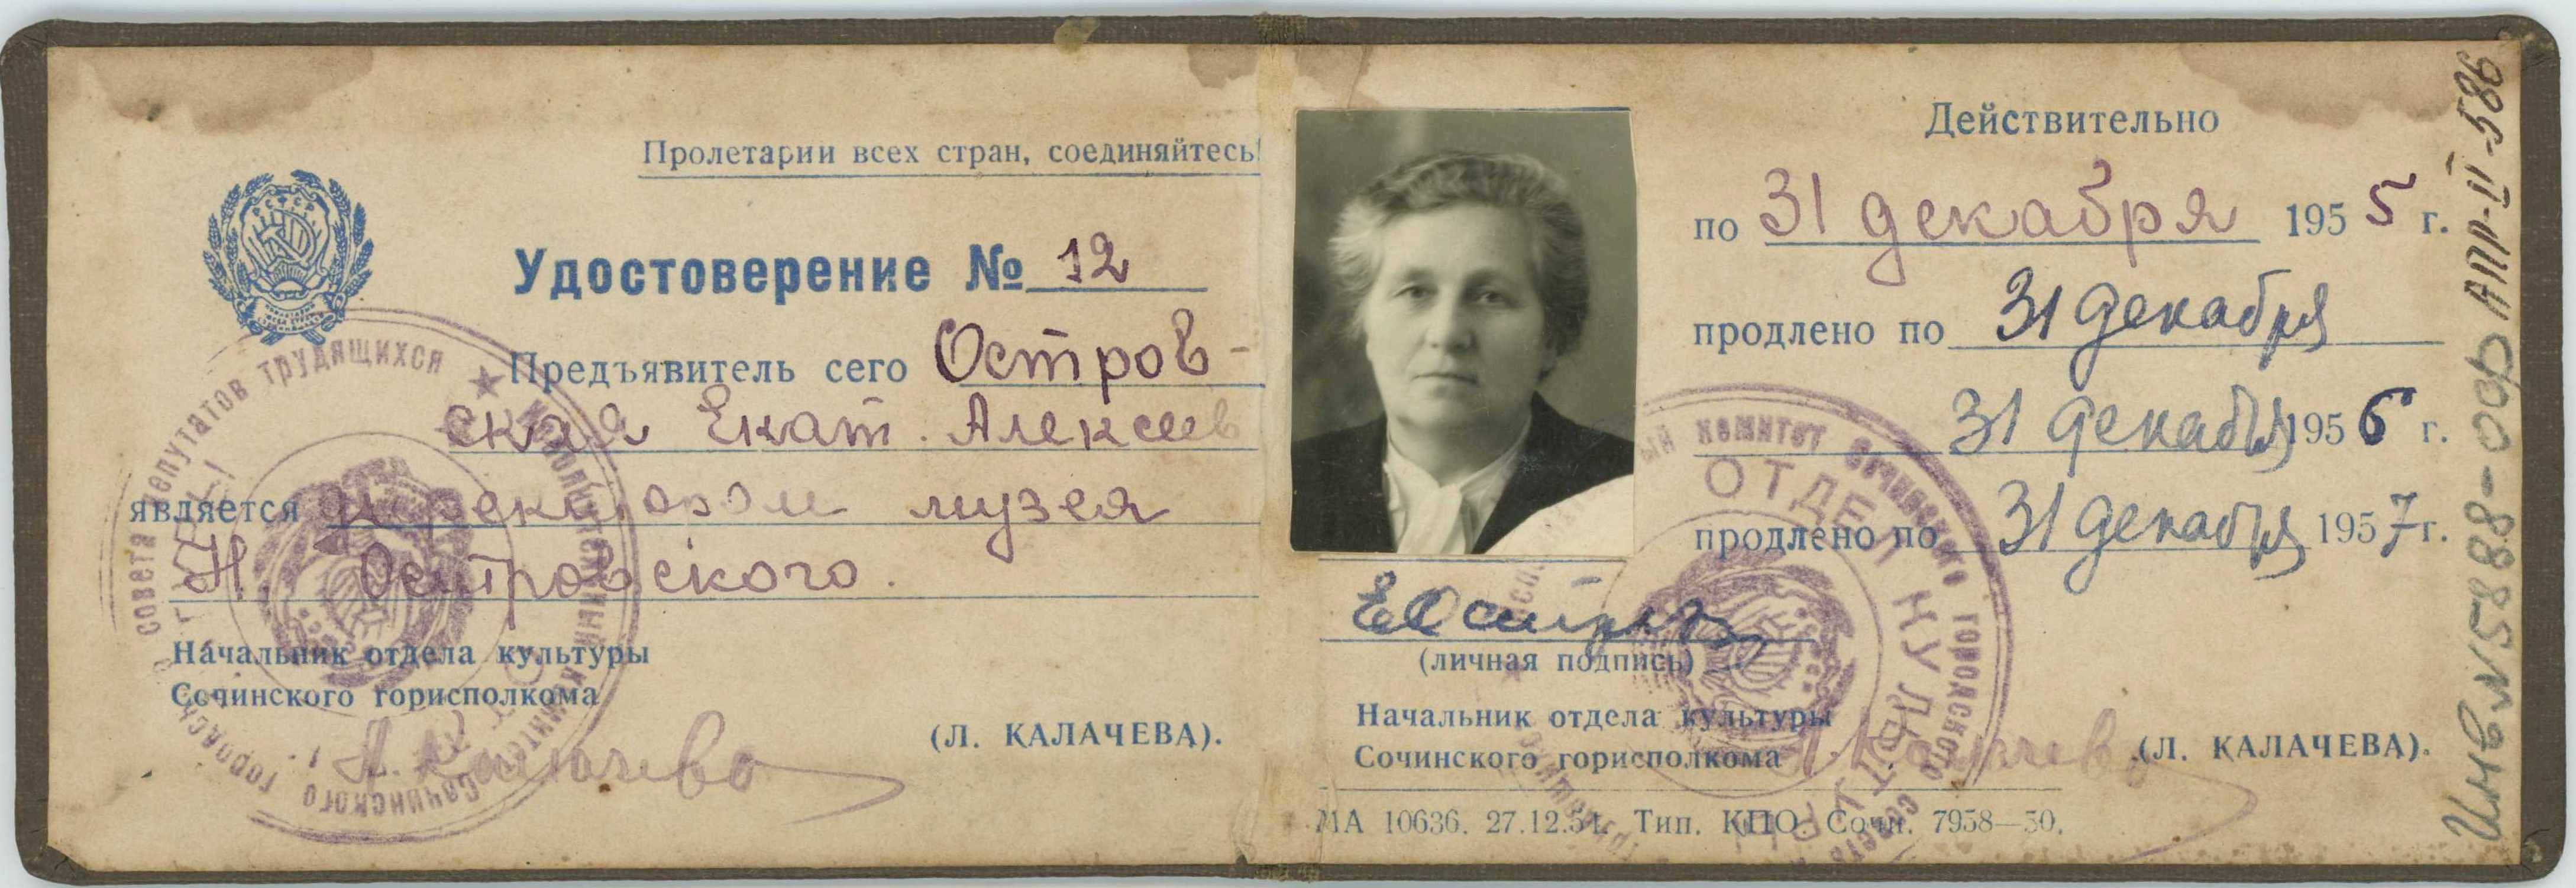 Пролетарии всех стран, соединяйтесь!
РСФСР
Удостоверение № 12
Предъявитель сего Остров-
ская Екат. Алексеев
является директором музея
Н. Островского.
Начальник отдела культуры
Сочинского горисполкома
(Л. КАЛАЧЕВА).
Л. Калачева
совета депутатов трудящихся ★ Исполнительный комитет Сочинского городского
Действительно
по 31 декабря 1955 г.
продлено по 31 декабря
31 декабря 1956 г.
продлено по 31 декабря 1957 г.
ЕОстров
(личная подпись)
Начальник отдела культуры
Сочинского горисполкома
Л. Калачева (Л. КАЛАЧЕВА).
МА 10636. 27.12.54. Тип. КПО. Сочи. 7958—50.
комитет Сочинского городского совета
ОТДЕЛ КУЛЬТУРЫ
Инв № 5888-ООФ АПР-II-586